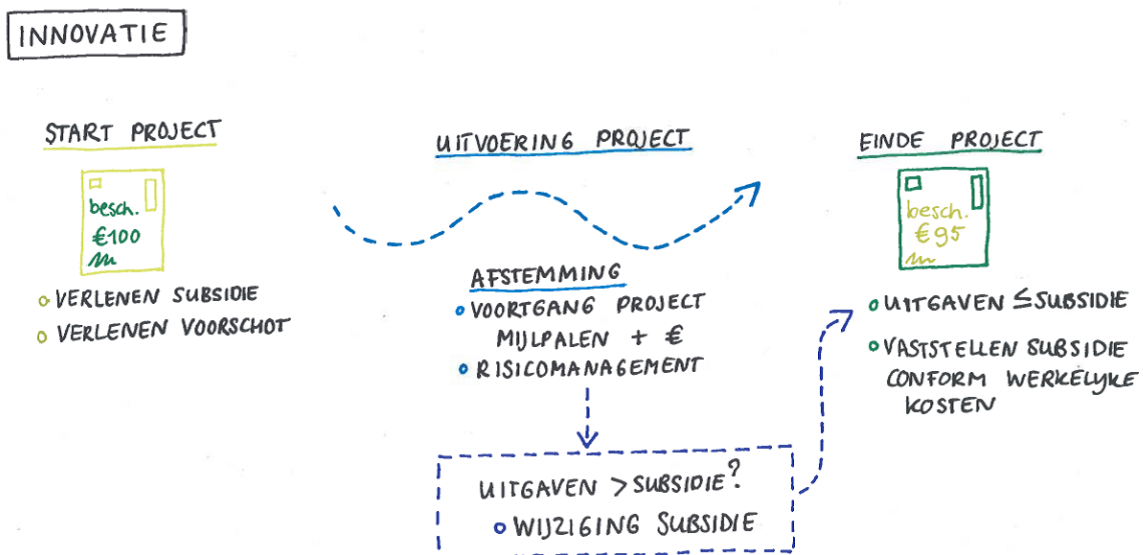 INNOVATIE
START PROJECT
besch.
€100
VERLENEN SUBSIDIE
VERLENEN VOORSCHOT
UITVOERING PROJECT
AFSTEMMING
VOORTGANG PROJECT
MIJLPALEN + €
RISICOMANAGEMENT
UITGAVEN > SUBSIDIE?
WIJZIGING SUBSIDIE
EINDE PROJECT
besch.
€95
UITGAVEN ≤ SUBSIDIE
VASTSTELLEN SUBSIDIE
CONFORM WERKELIJKE
KOSTEN